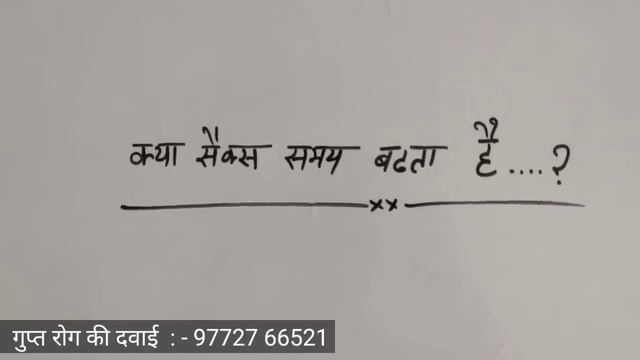 क्या सैक्स समय बढता है....?
xx
गुप्त रोग की दवाई : - 97727 66521